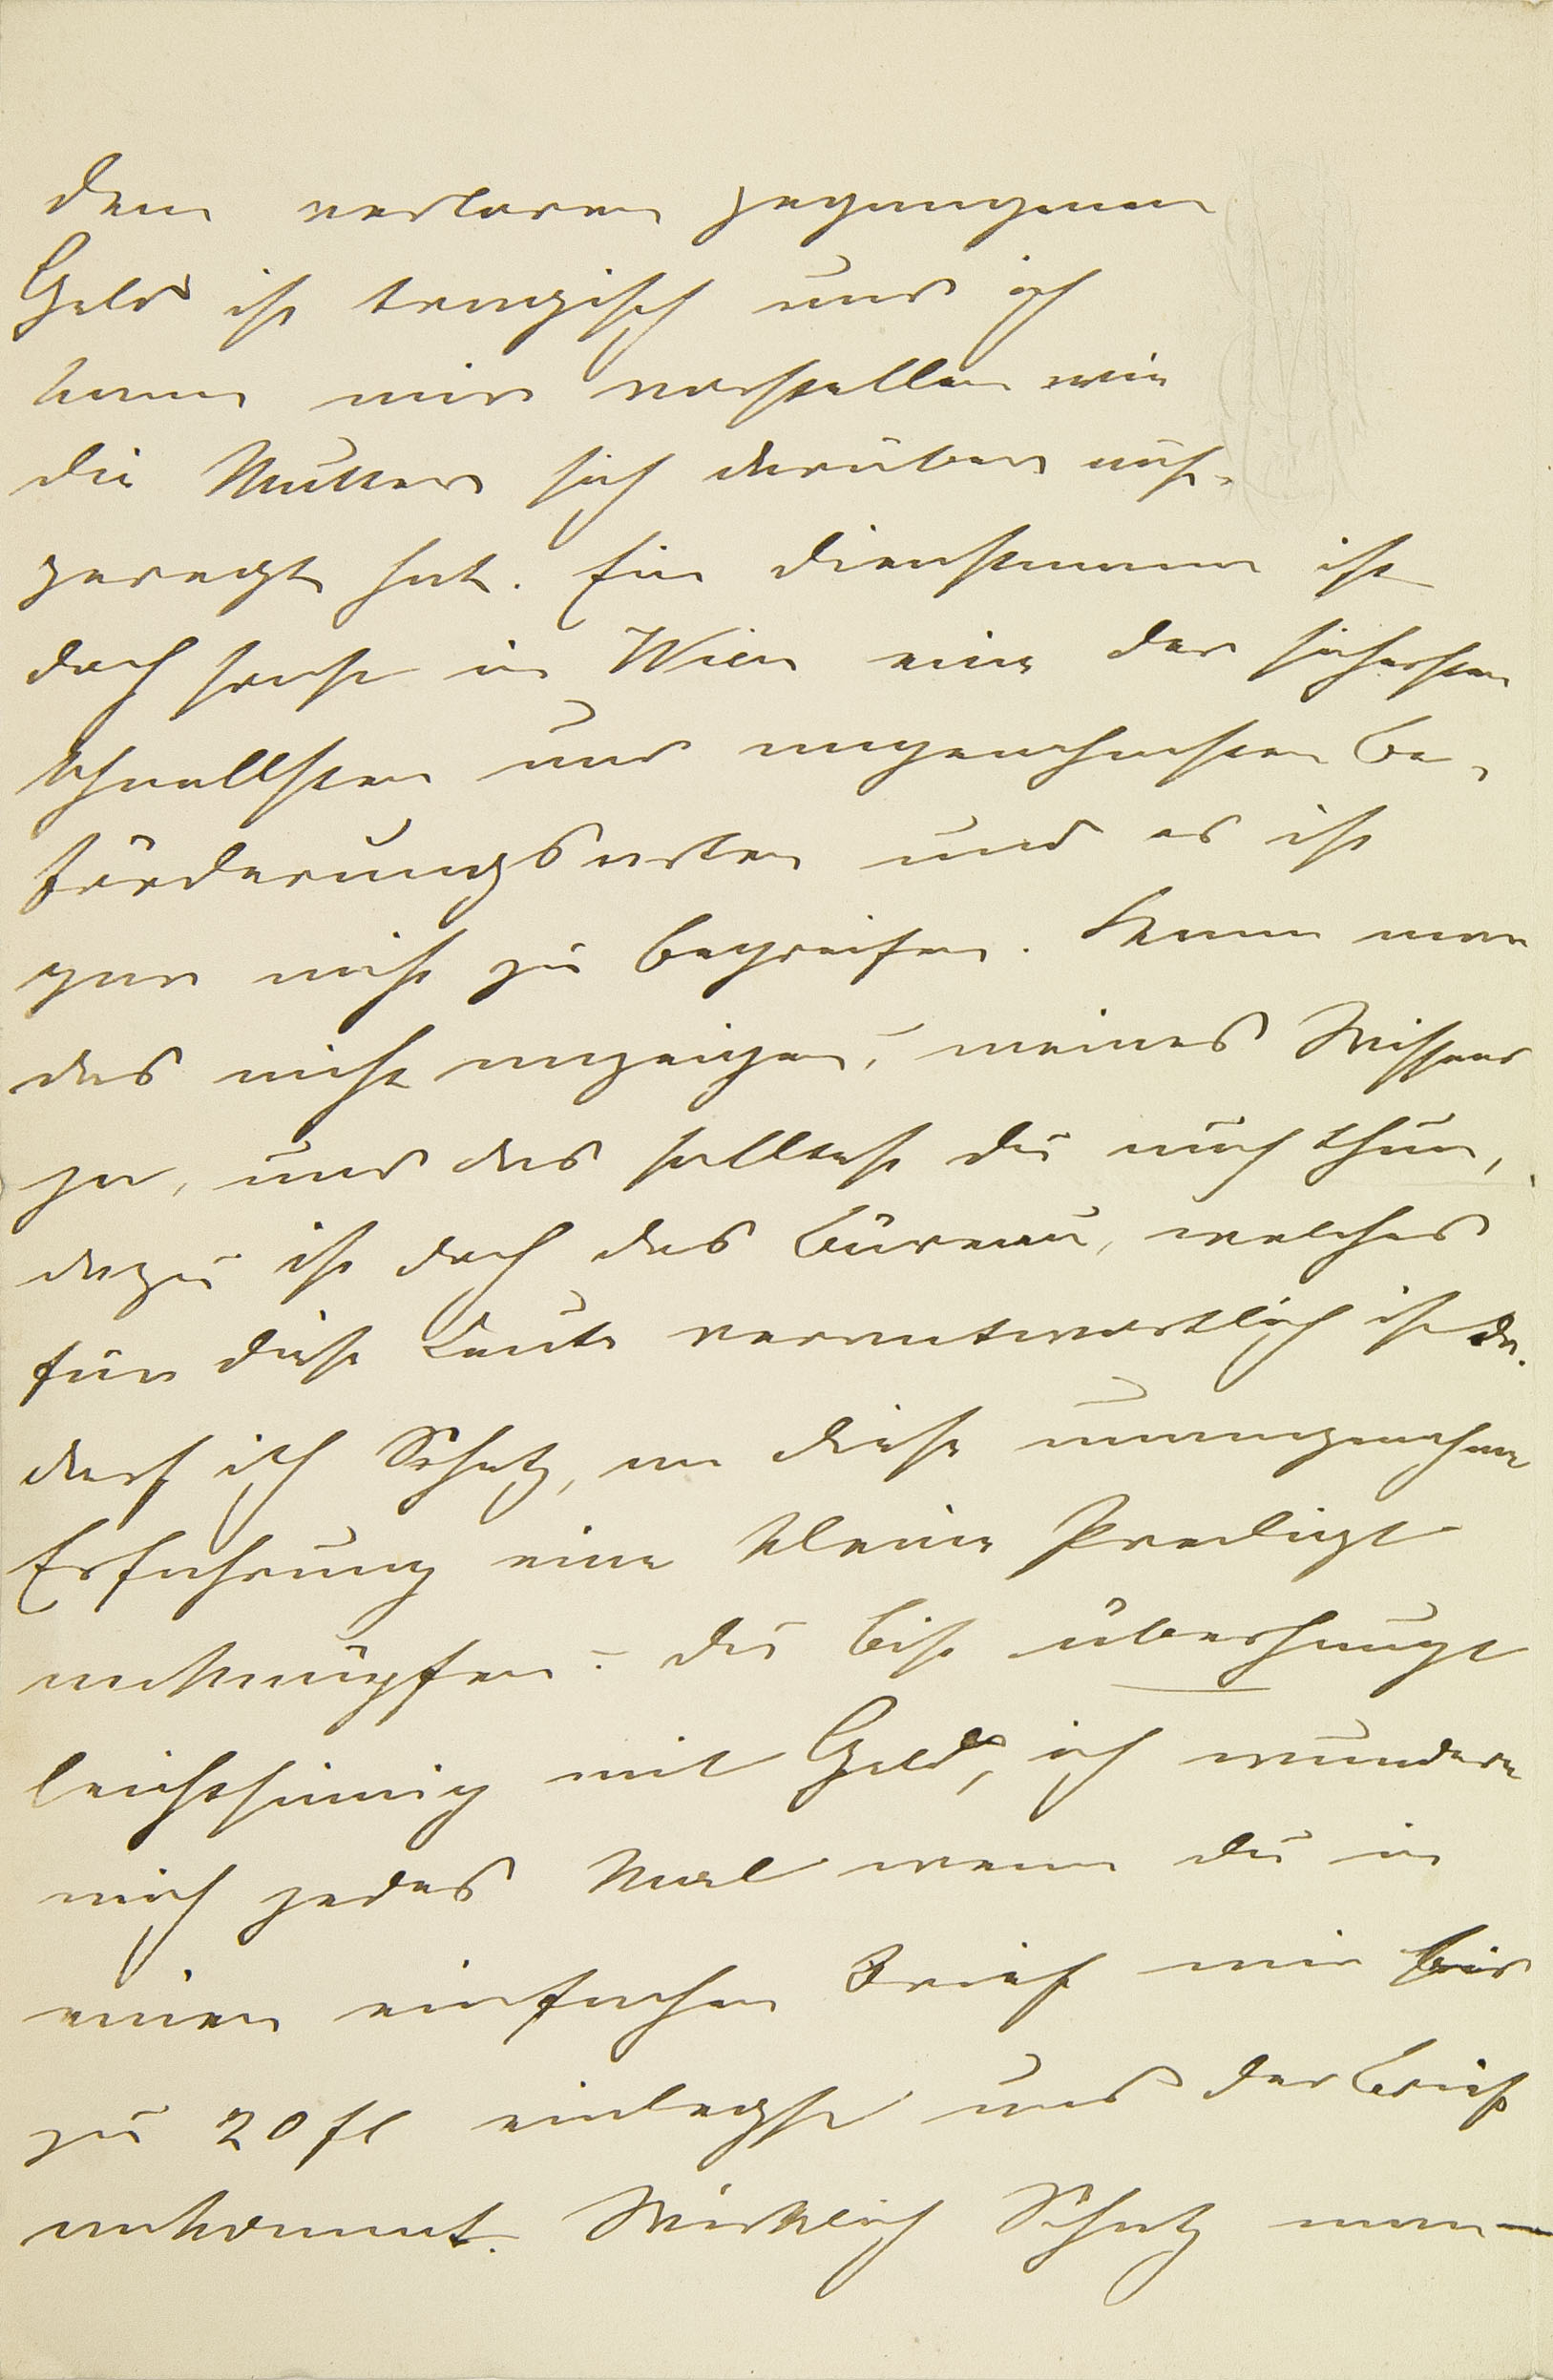 dem verloren gegangenen
Geld ist tragisch und ich
kann mir vorstellen wie
die Mutter sich darüber auf-
geregt hat. Ein Dienstmann ist
doch sonst in Wien eine der sichersten
schnellsten und angenehmsten Be-
förderungsarten und es ist
gar nicht zu begreifen. Kann man
das nicht anzeigen, meines Wissens
ja, und das solltest du auch thun,
dazu ist doch das Bureau, welches
für diese Leute verantwortlich ist da.
darf ich Schatz, an diese unangenehme
Erfahrung eine kleine Predigt
anknüpfen: du bist überhaupt
leichtsinnig mit Geld, ich wundere
mich jedes Mal wenn du in
einen einfachen Brief mir bis
zu 20 fl einlegst und der Brief
ankommt. Wirklich Schatz man